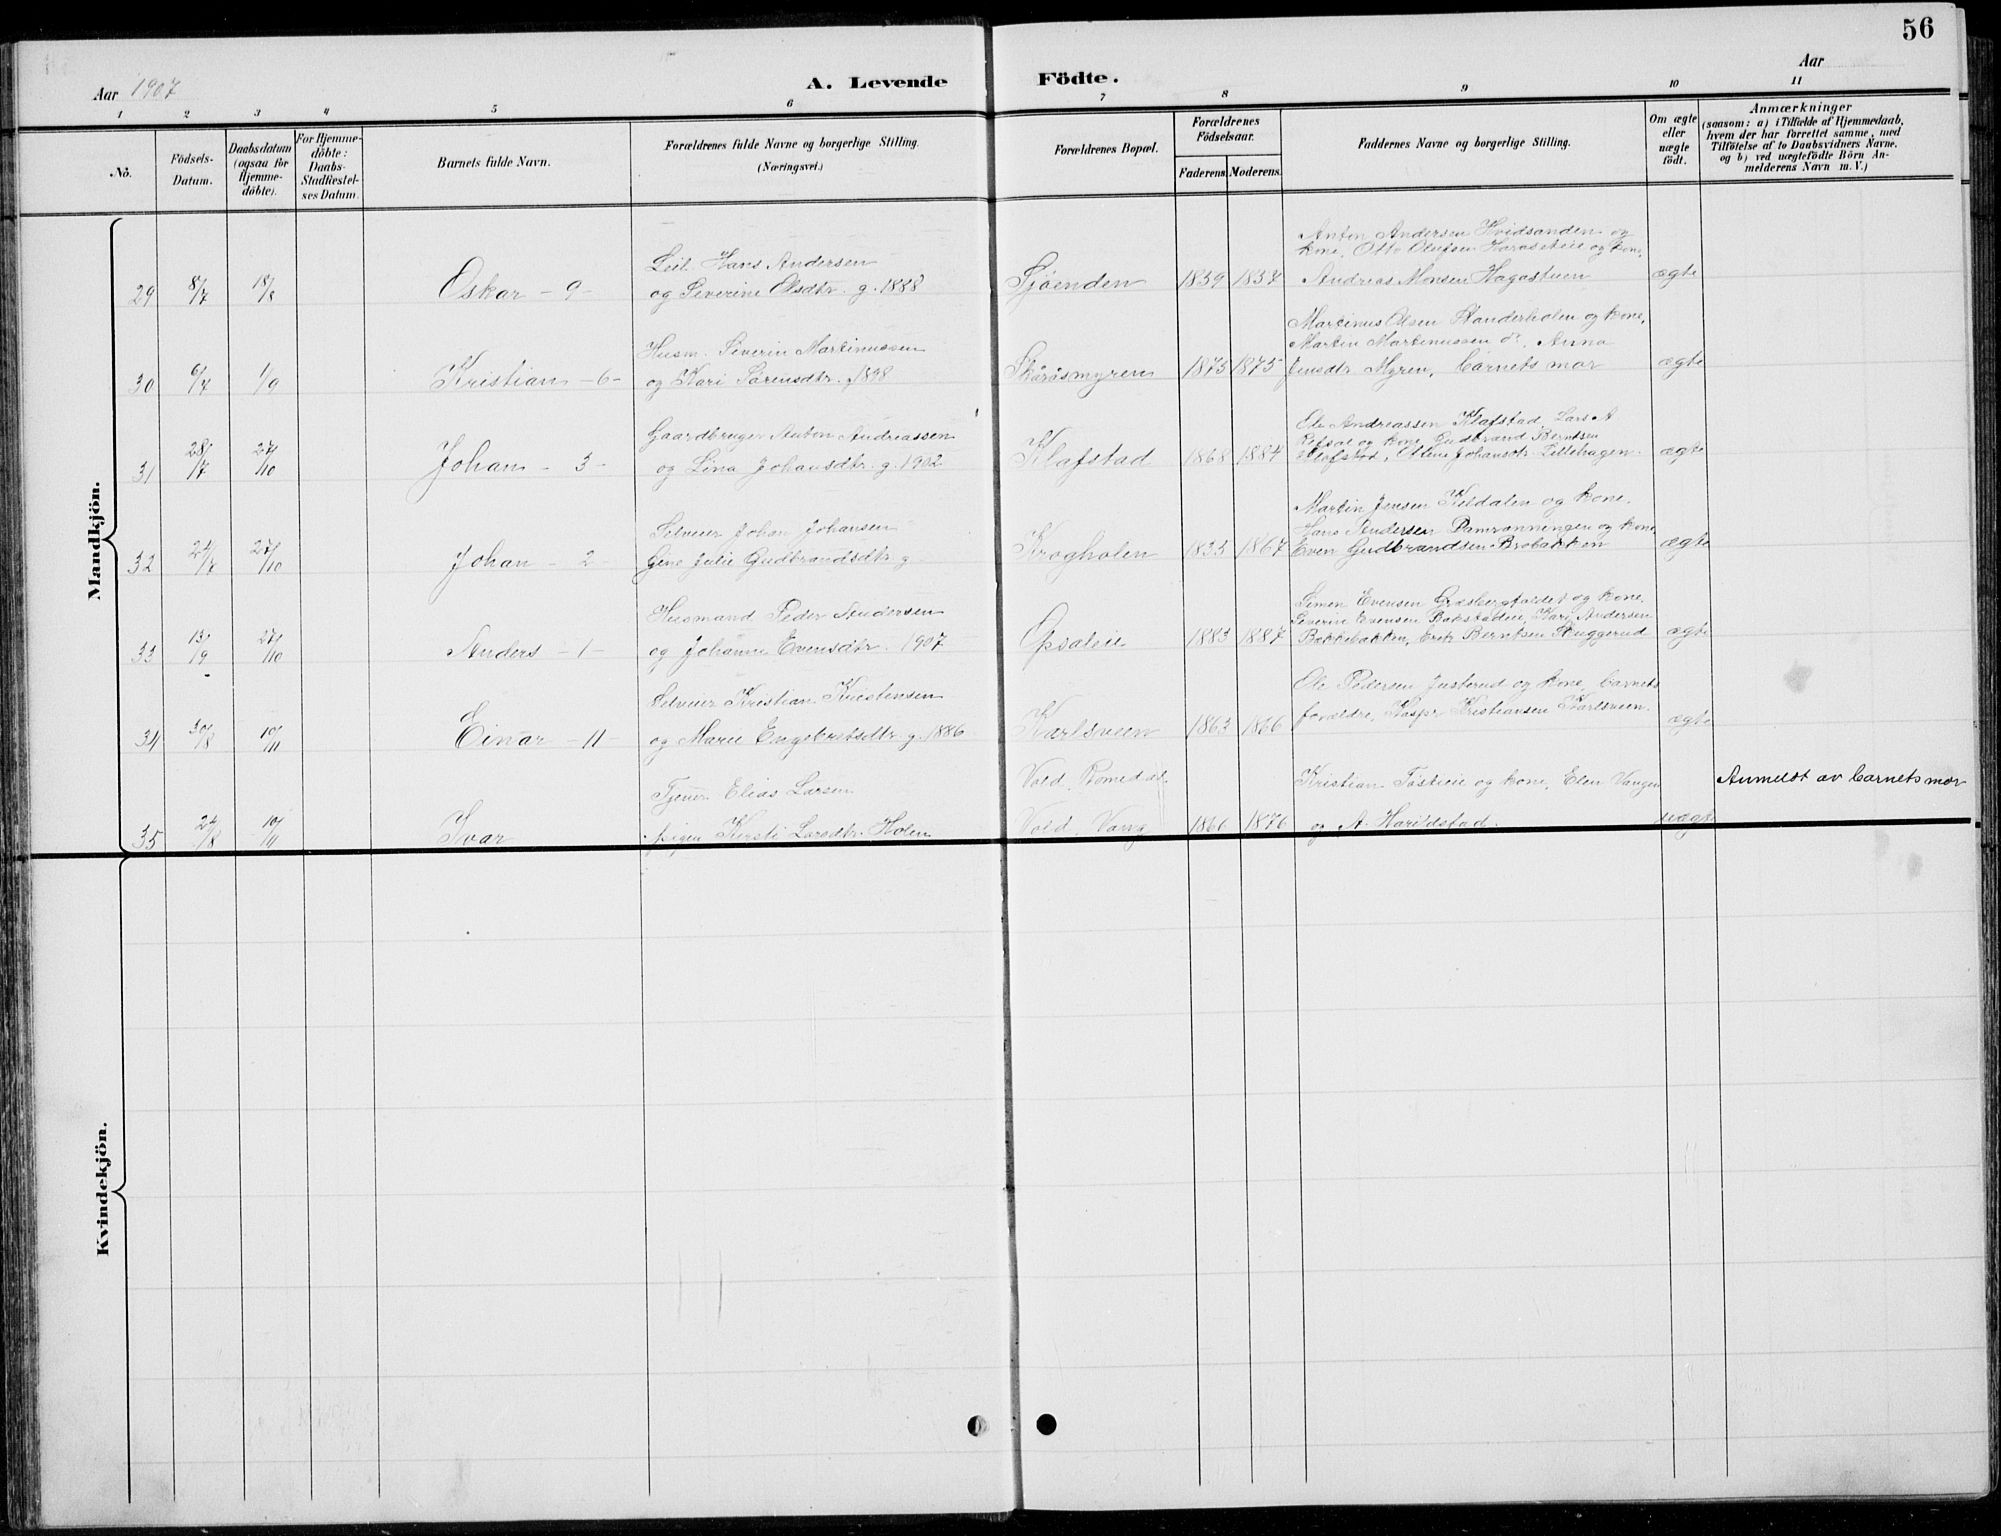 56
Aar 1907
A. Levende Födte.
Aar
1 2 3 4 5 6 7 8 9 10 11
Nö.
Födsels-Datum.
Daabsdatum (ogsaa för Hjemme-döbte).
For Hjemme-döbte: Daabs-Stadfæstel-ses Datum.
Barnets fulde Navn.
Forældrenes fulde Navne og borgerlige Stilling.
(Næringsvei.)
Forældrenes Bopæl.
Forældrenes Födselsaar.
Faderens. Moderens.
Faddernes Navne og borgerlige Stilling.
Om ægte eller uægte födt.
Anmærkninger
(saasom: a) i Tilfælde af Hjemmedaab, hvem der har forrettet samme, med Tilföielse af to Daabsvidners Navne, og b) ved uægtefödte Börn Anmelderens Navn m. V.)
Mandkjön.
Anton Andersen Hvidsanden og
kone, Otto Olufsen og kone,
Leil. Hans Andersen
29 8/7 18/8 Oskar - 9 - og Severine Olsdtr. g. 1888 Sjöenden 1859 Andreas Monsen Hagastuen ægte
Martinus Olsen og kone,
Husm. Severin Martinussen Martin Martinussen do, Anna
30 6/7 1/9 Kristian - 6 - og Kari Sörensdtr. 1898 Skåråsmyren 1873 1875 Jensdtr. Myren, barnets mor ægte
Gaardbruger Anton Andreassen Ole Andreassen Klafstad, Lars A
og kone, Gudbrand Berntsen
31 28/7 27/10 Johan - 3 - og Lina Johansdtr. g. 1902 Klafstad 1868 1884 Klafstad, Johansdtr. Lillehagen. ægte
Martin Jensen Kildalen og kone.
Selveier Johan Johansen Hans Andersen og kone,
32 24/7 27/10 Johan - 2 - Gine Julie Gudbrandsdtr. g. Krogholen 1867 Even Gudbrandsen Brobakken ægte
Simen Evensen og kone,
Husmand Peder Andersen Severin Evensen Kari Andersen
33 13/9 27/10 Anders - 1 - og Johanne Evensdtr. 1907 Opsaleie 1883 1887 Bakkebakken, Berntsen ægte
Selveier Kristian Kristensen Ole Pedersen Justerud og kone, barnets
34 30/8 10/11 Einar - 11 - og Marie Engebretsdtr. g. 1886 Karlsveen 1863 1866 forældre, Kaspr Kristiansen Karlsveen. ægte
Tjener Elias Larsen Vold, Romedal Kristian og kone, Elen Vangen Anmeldt av barnets mor
35 24/8 10/11 Ivar pigen Kersti Larsdtr. Holen Vold, Vang 1866 1876 og A. Harildstad. uægte
Kvindekjön.